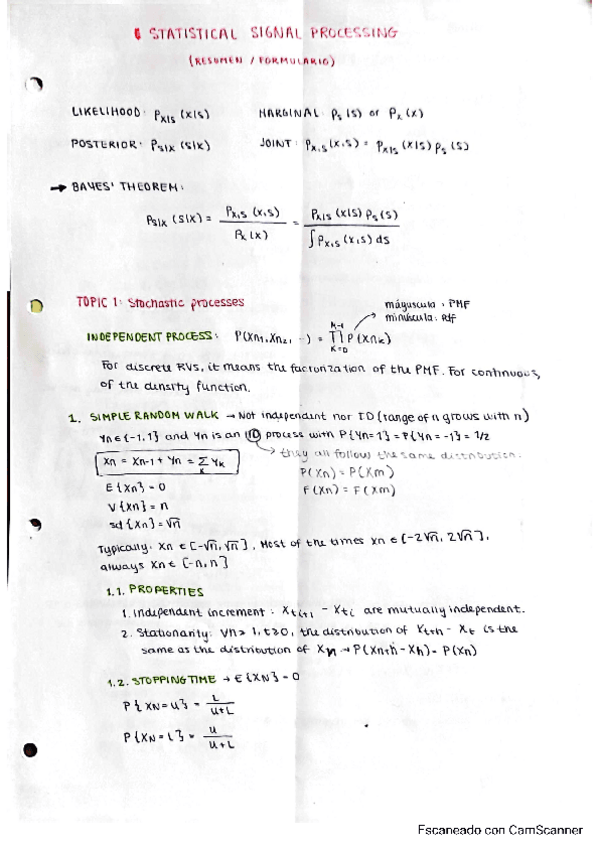 STATISTICAL SIGNAL PROCESSING
(RESUMEN / FORMULARIO)
LIKELIHOOD: Px|s (x|s) MARGINAL: Ps (s) or Px (x)
POSTERIOR: Ps|x (s|x) JOINT: Px,s (x,s) = Px|s (x|s) Ps (s)
→ BAYES' THEOREM:
Ps|x (s|x) = Px,s (x,s) / Px (x) = Px|s (x|s) Ps (s) / ∫Px,s (x,s) ds
TOPIC 1: Stochastic processes
máyuscula: PMF
minúscula: Pdf
INDEPENDENT PROCESS: P(Xn1, Xn2, ...) = ∏ K=0 K-1 P(Xnk)
For discrete RVs, it means the factorization of the PMF. For continuous,
of the density function.
1. SIMPLE RANDOM WALK → Not independent nor ID (range of n grows with n)
Yn ∈ {-1,1} and Yn is an IID process with P{Yn=1} = P{Yn = -1} = 1/2
they all follow the same distribution.
Xn = Xn-1 + Yn = Σ K YK
P(Xn) = P(Xm)
F(Xn) = F(Xm)
E{Xn} = 0
V{Xn} = n
sd{Xn} = √n
Typically: Xn ∈ [-√n, √n]. Most of the times Xn ∈ [-2√n, 2√n],
always Xn ∈ [-n, n]
1.1. PROPERTIES
1. Independent increment: Xti+1 - Xti are mutually independent.
2. Stationarity: ∀n≥1, t≥0, the distribution of Xt+n - Xt is the
same as the distribution of Xn → P(Xn+h - Xh) = P(Xn)
1.2. STOPPING TIME → E{XN} = 0
P{XN = U} = L / U+L
P{XN = L} = U / U+L
Escaneado con CamScanner